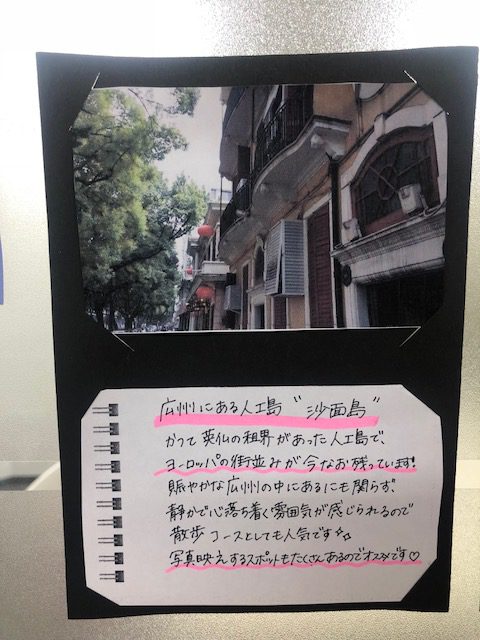 広州にある人工島 "沙面島"
かつて英仏の租界があった人工島で、
ヨーロッパの街並みが今なお残っています!
賑やかな広州の中にあるにも関らず、
静かで心落ち着く雰囲気が感じられるので
散歩コースとしても人気です☆
写真映えするスポットもたくさんあるのでオススメです♡